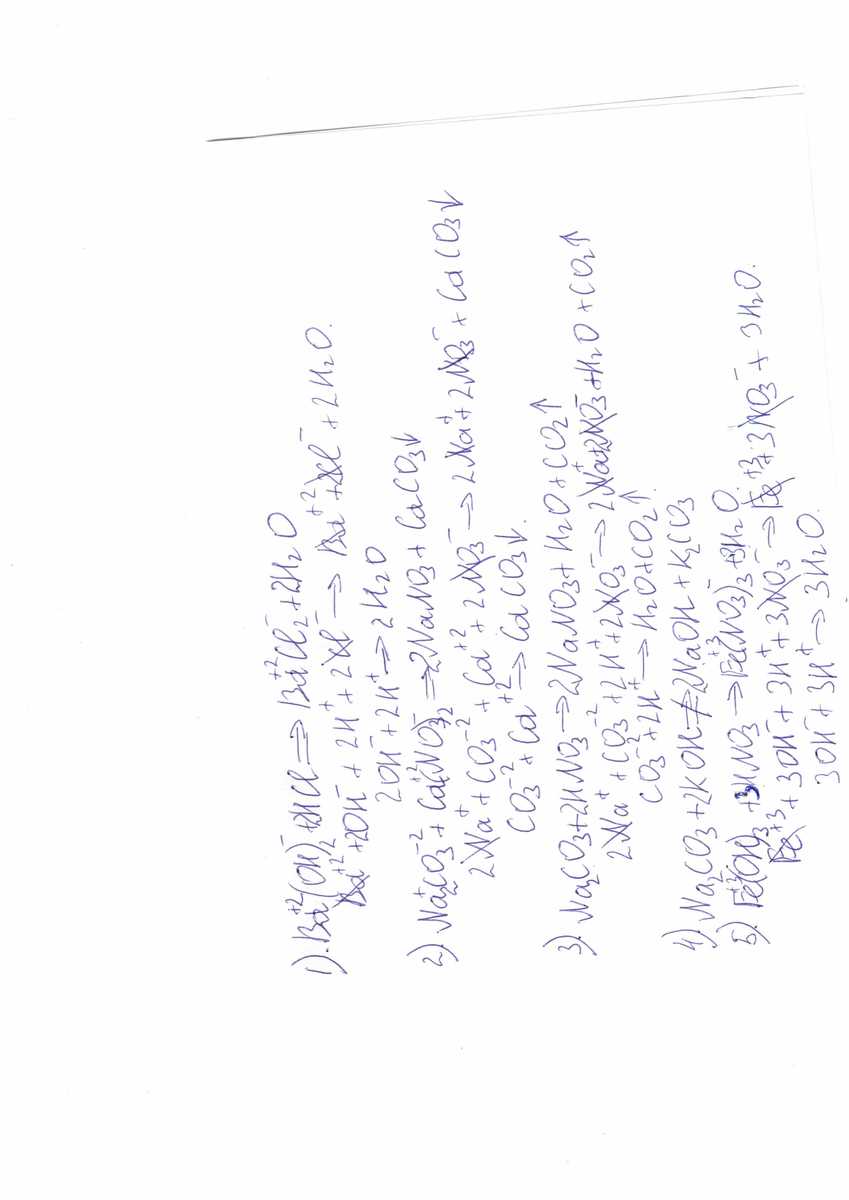 1). Ba⁺²(OH)₂⁻ + 2HCl → Ba⁺²Cl₂⁻ + 2H₂O
Ba⁺² + 2OH⁻ + 2H⁺ + 2Cl⁻ → Ba⁺² + 2Cl⁻ + 2H₂O.
2OH⁻ + 2H⁺ → 2H₂O
2). Na₂⁺CO₃⁻² + Ca⁺²(NO₃)₂⁻ → 2NaNO₃ + CaCO₃↓
2Na⁺ + CO₃⁻² + Ca⁺² + 2NO₃⁻ → 2Na⁺ + 2NO₃⁻ + CaCO₃↓
CO₃⁻² + Ca⁺² → CaCO₃↓.
3). Na₂CO₃ + 2HNO₃ → 2NaNO₃ + H₂O + CO₂↑
2Na⁺ + CO₃⁻² + 2H⁺ + 2NO₃⁻ → 2Na⁺ + 2NO₃⁻ + H₂O + CO₂↑
CO₃⁻² + 2H⁺ → H₂O + CO₂↑.
4) Na₂CO₃ + 2KOH ↛ 2NaOH + K₂CO₃
5). Fe⁺³(OH)₃⁻ + 3HNO₃ → Fe⁺³(NO₃)₃⁻ + 3H₂O.
Fe⁺³ + 3OH⁻ + 3H⁺ + 3NO₃⁻ → Fe⁺³ + 3NO₃⁻ + 3H₂O.
3OH⁻ + 3H⁺ → 3H₂O.